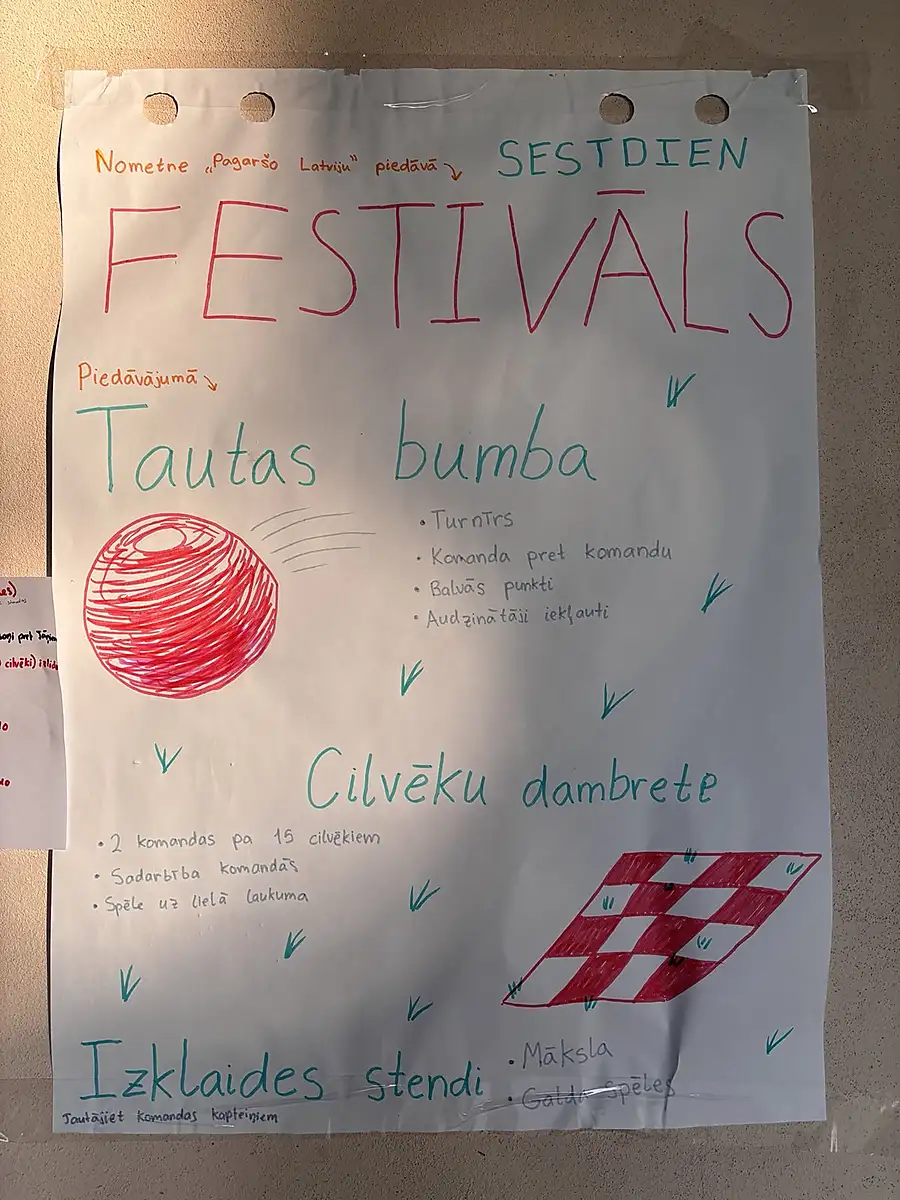 Nometne „Pagaršo Latviju" piedāvā
SESTDIEN
FESTIVĀLS
Piedāvājumā
Tautas bumba
• Turnīrs
• Komanda pret komandu
• Balvās punkti
• Audzinātāji iekļauti
Cilvēku dambrete
• 2 komandas pa 15 cilvēkiem
• Sadarbība komandās
• Spēle uz lielā laukuma
Izklaides stendi
• Māksla
• Galda spēles
Jautājiet komandas kapteiņiem
pret
cilvēki)